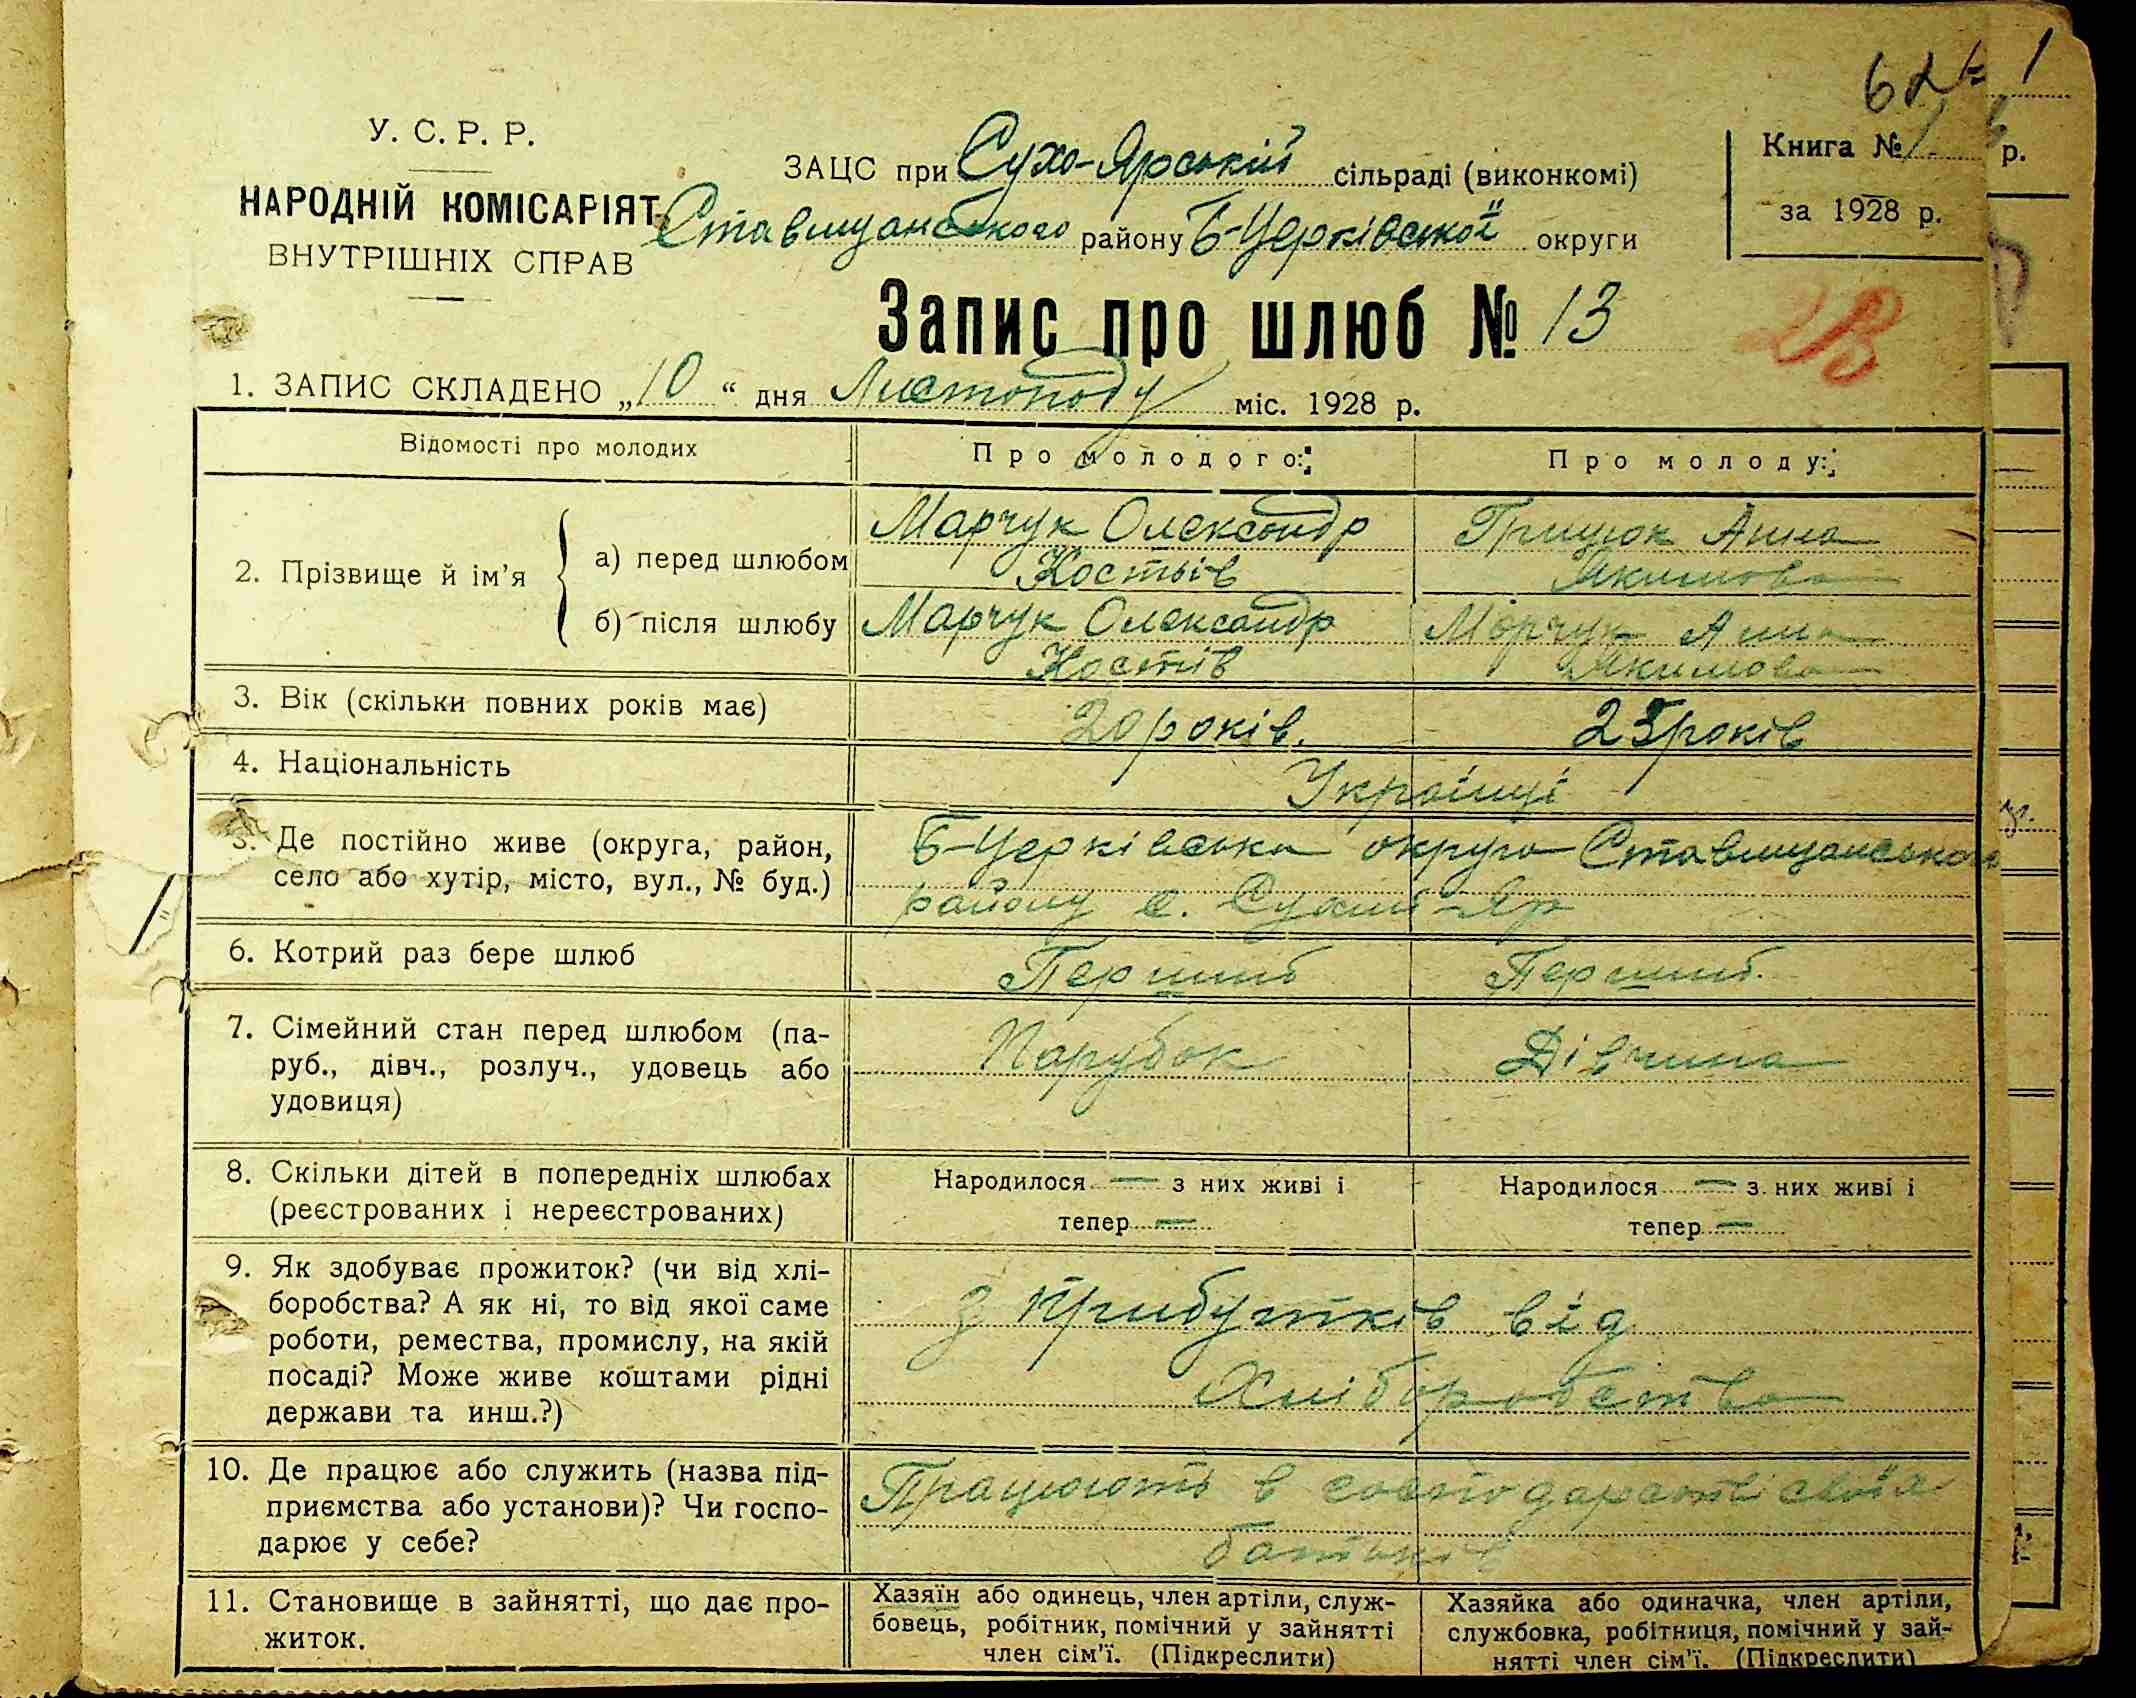 1
У. С. Р. Р.
НАРОДНІЙ КОМІСАРІЯТ
ВНУТРІШНІХ СПРАВ
ЗАЦС при Сухо-Ярській сільраді (виконкомі)
Ставищанського району Б-Церківської округи
Книга № 1
за 1928 р.
р.
Запис про шлюб № 13
1. ЗАПИС СКЛАДЕНО „10“ дня Листопаду міс. 1928 р.
Відомості про молодих Про молодого: Про молоду:
2. Прізвище й ім’я
а) перед шлюбом Марчук Олександр Грицюк Анна
Костьів Якимова
б) після шлюбу Марчук Олександр Марчук Анна
Костів Якимова
3. Вік (скільки повних років має) 20 років. 23 років
4. Національність Українці
5. Де постійно живе (округа, район, Б-Церківська округа Ставищанського
село або хутір, місто, вул., № буд.) району с. Сухий-Яр
6. Котрий раз бере шлюб Перший Перший.
7. Сімейний стан перед шлюбом (па- Парубок Дівчина
руб., дівч., розлуч., удовець або
удовиця)
8. Скільки дітей в попередніх шлюбах Народилося — з них живі і Народилося — з них живі і
(реєстрованих і нереєстрованих) тепер — тепер —
9. Як здобуває прожиток? (чи від хлі-
боробства? А як ні, то від якої саме з прибутків від
роботи, ремества, промислу, на якій
посаді? Може живе коштами рідні Хліборобства
держави та инш.?)
10. Де працює або служить (назва під- Працюють в господарстві своїх
приємства або установи)? Чи госпо-
дарює у себе? батьків
11. Становище в зайнятті, що дає про- Хазяїн або одинець, член артіли, служ- Хазяйка або одиначка, член артіли,
житок. бовець, робітник, помічний у зайнятті службовка, робітниця, помічний у зай-
член сім’ї. (Підкреслити) нятті член сім’ї. (Підкреслити)